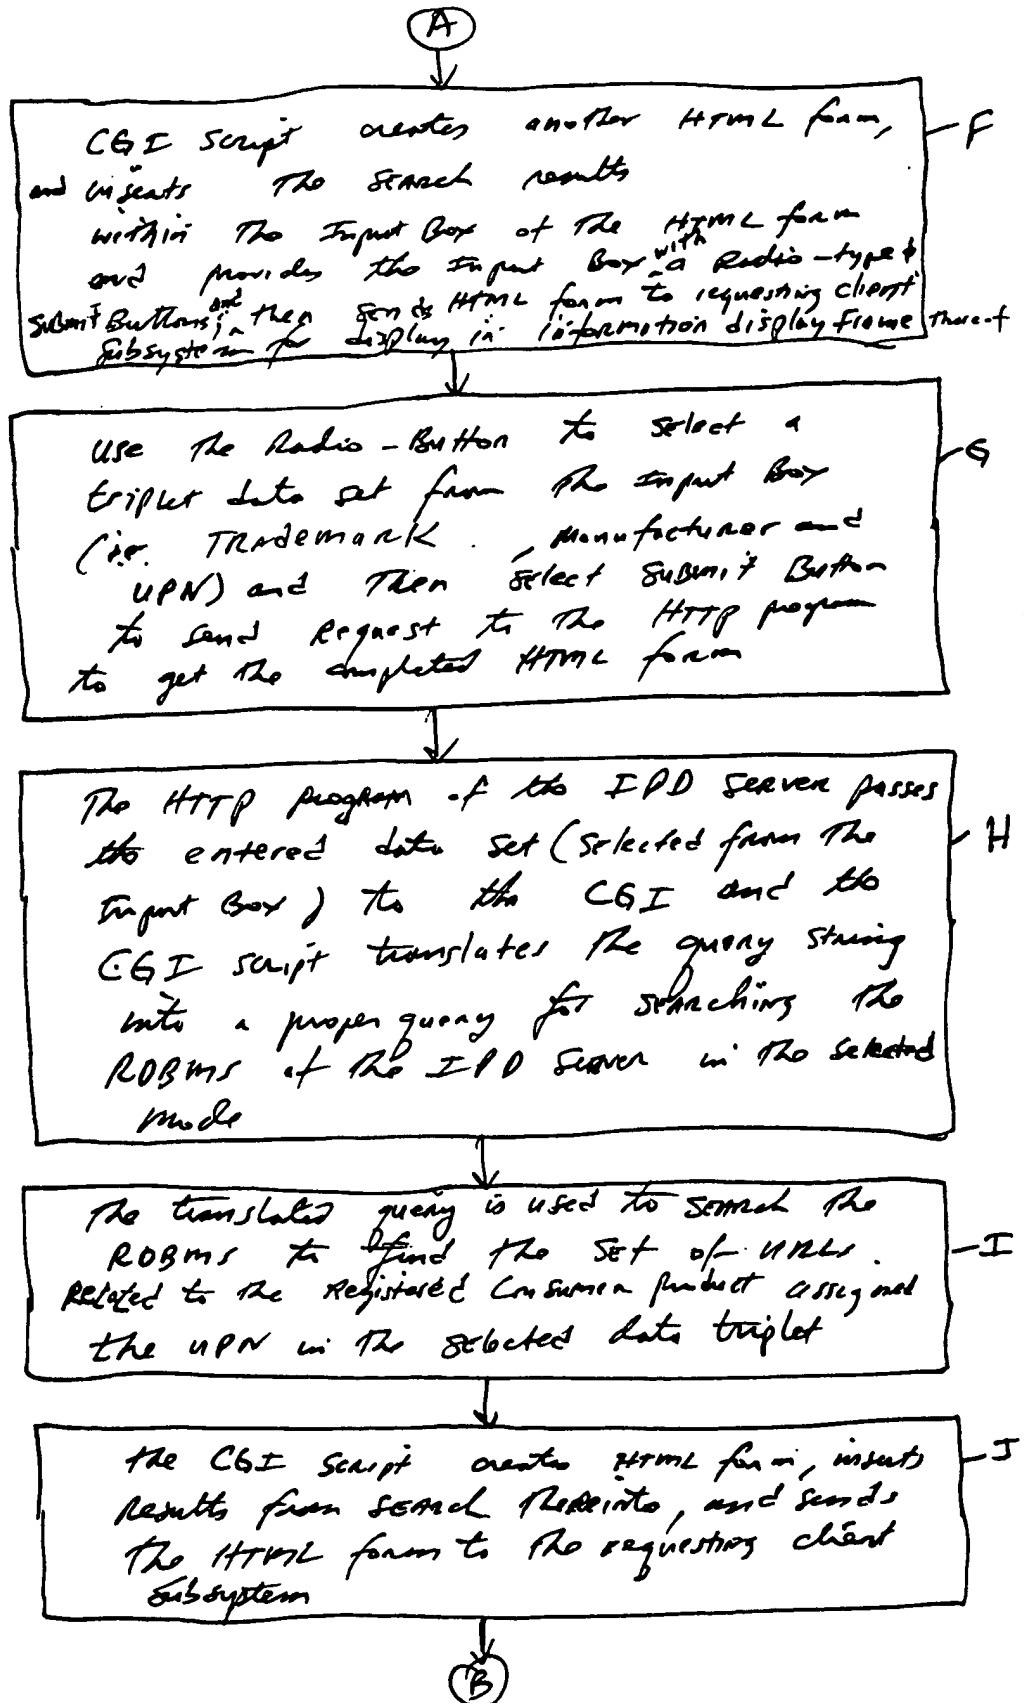 A
CGI Script creates another HTML form, F
and inserts The SEARCH results
within The Input Box of The HTML form
and provides the Input Box with a Radio-type &
Submit Buttons; and then sends HTML form to requesting client
Subsystem for display in information display Frame thereof
Use The Radio-Button to select a G
triplet data set from The Input Box
(i.e. TRademark , Manufacturer and
UPN) and Then select Submit Button
to send Request to The HTTP program
to get The completed HTML form
The HTTP program of the IPD Server passes
the entered data set (selected from The H
Input Box) to the CGI and the
CGI script translates The query string
into a proper query for searching the
RDBMS of The IPD Server in The selected
Mode
The translated query is used to SEARCH The
RDBMS to find the SET of URLs I
Related to The Registered Consumer product assigned
the UPN in The selected data triplet
the CGI Script creates HTML form, inserts J
Results from SEARCH Thereinto, and sends
The HTML form to The requesting client
Subsystem
B